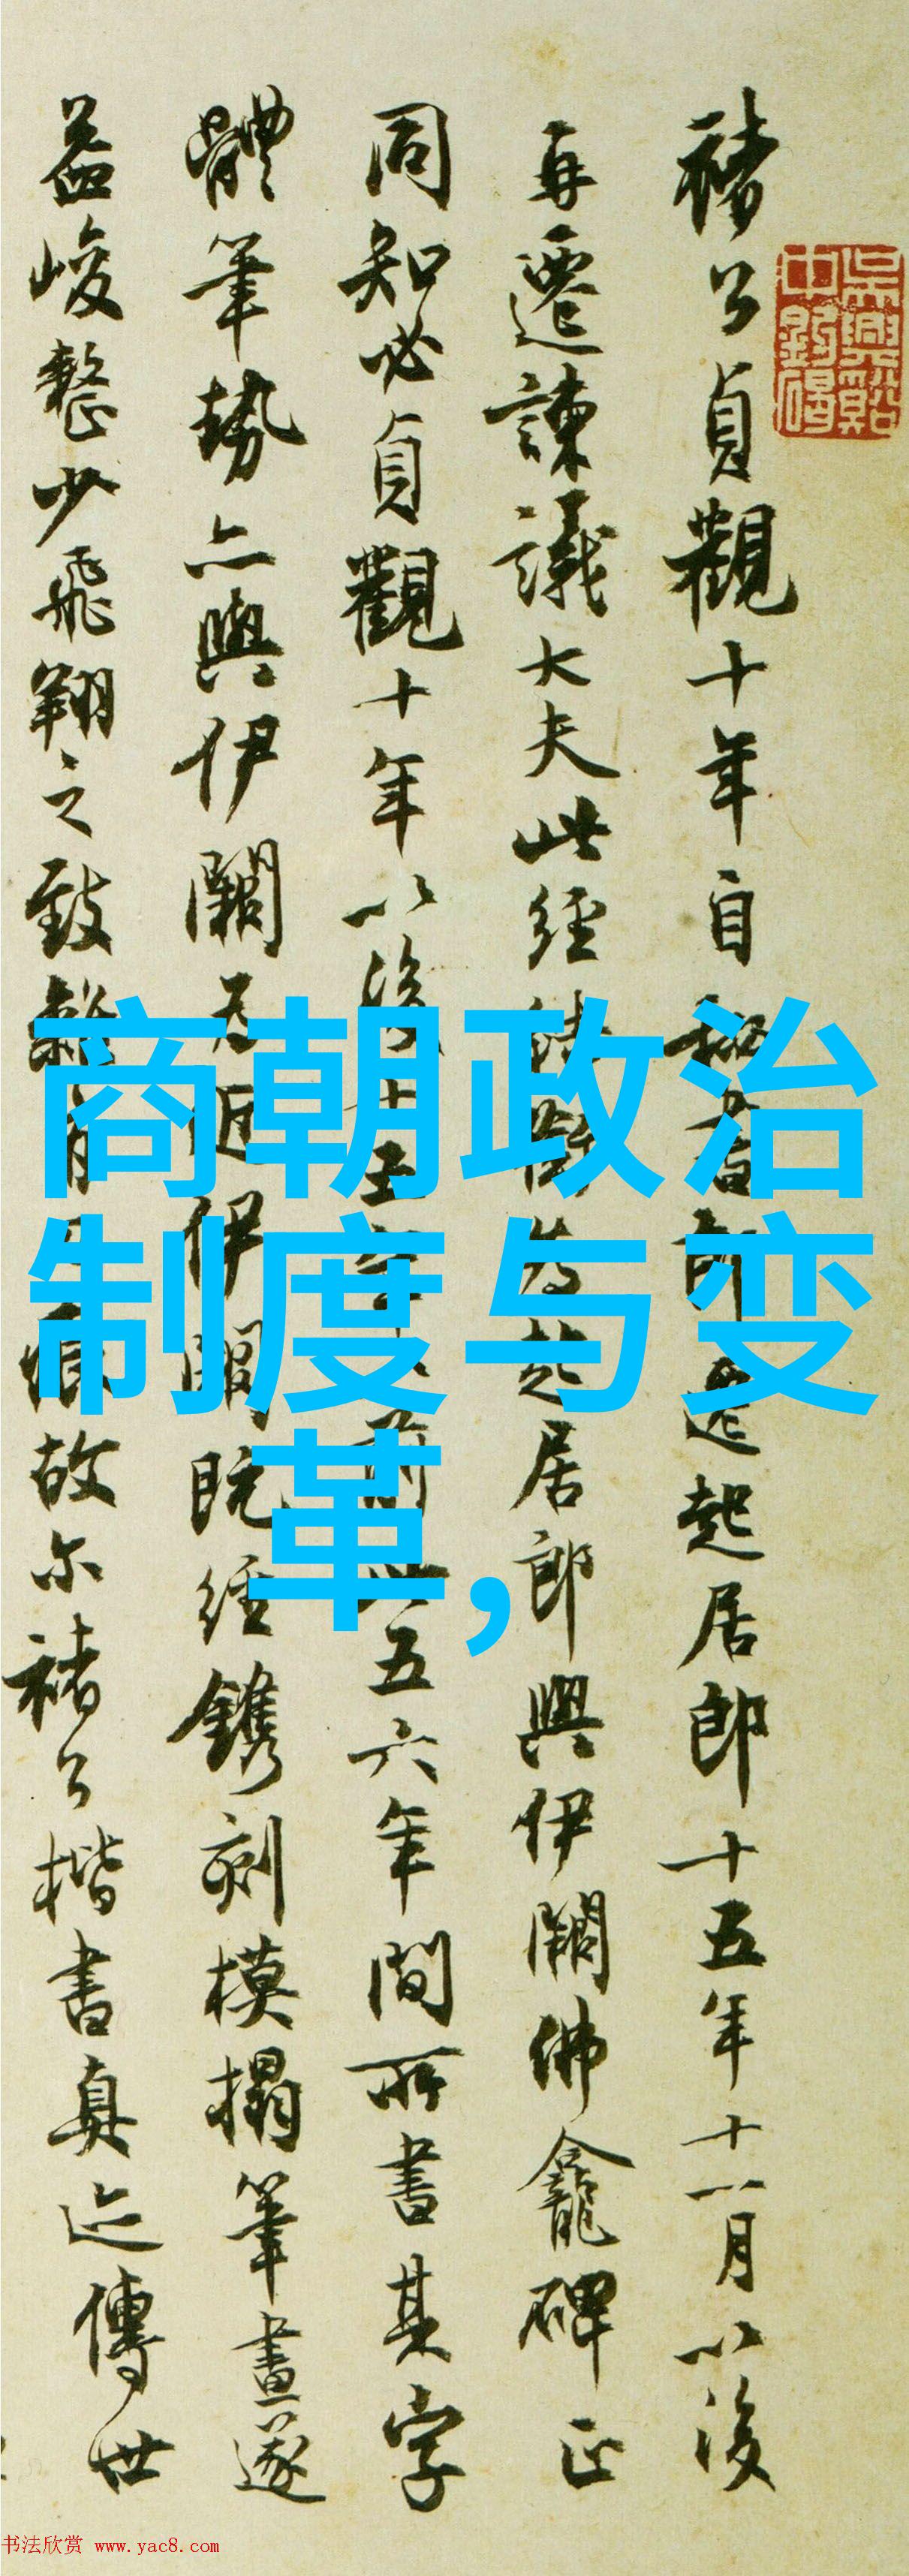 褚公貞觀十年自秘書郎遷起居郎十五年十一月以後
再遷諫議大夫此經結銜為起居郎與伊闕佛龕碑正
同知必貞觀十年以後十五年以前此五六年間所書其字
體筆勢亦與伊闕為近伊闕既經鐫刻模搨筆畫遂
益峻整少飛翔之致故尔褚公楷書真迹傳世
商朝政治
制度与变
革,
书法欣赏 www.yac8.com